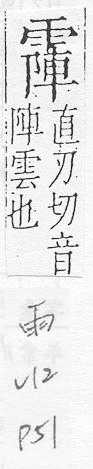 直刃切音
陣雲也
雨
V12
P51